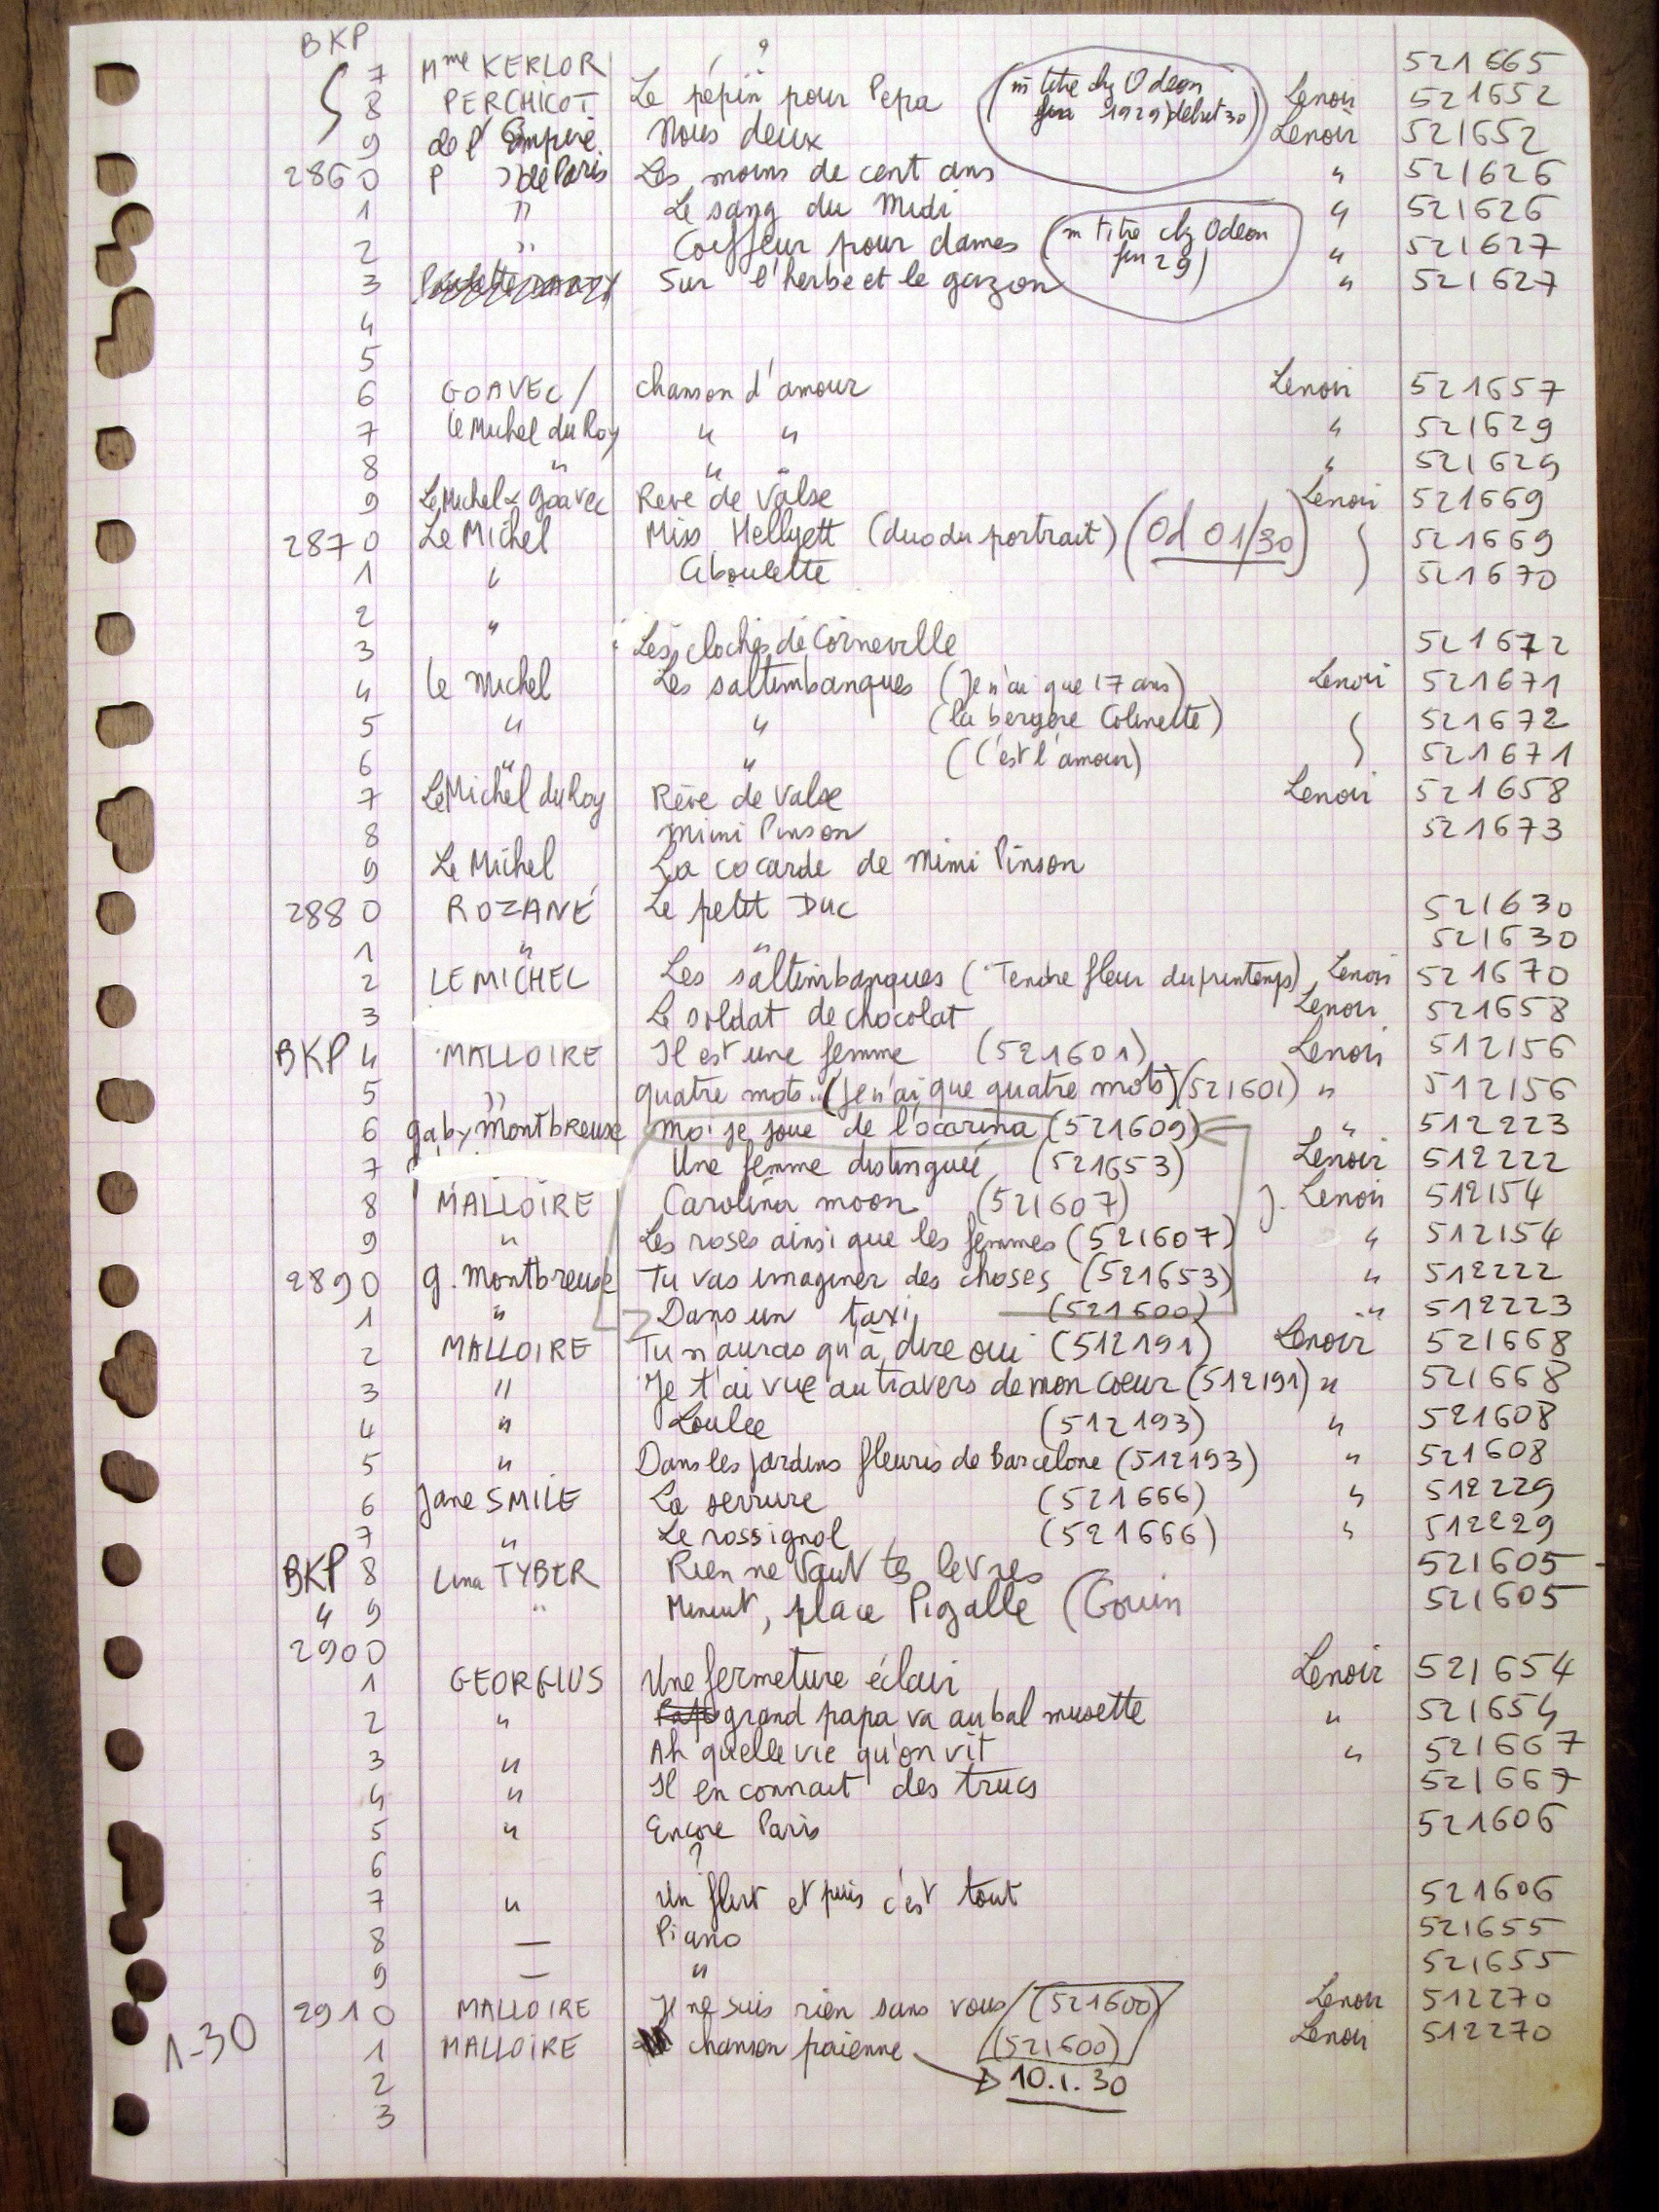 BKP
7 Mme KERLOR ? 521665
8 PERCHICOT Le pépin pour Pepa (m titre chz Odeon fin 1929/debut 30) Lenoir 521652
9 de l'Empire Nous deux Lenoir 521652
2860 P " de Paris Les moins de cent ans " 521626
1 " Le sang du Midi " 521626
2 " Coiffeur pour dames (m titre chz Odeon fin 29) " 521627
3 Sur l'herbe et le gazon " 521627
4
5
6 GOAVEC / Chanson d'amour Lenoir 521657
7 Le Michel du Roy " " " 521629
8 " " " 521629
9 Le Michel & Goavec Reve de Valse Lenoir 521669
2870 Le Michel Miss Hellyett (duo du portrait) (Od 01/30) 521669
1 " Ciboulette 521670
2 "
3 Les cloches de Corneville 521672
4 Le Michel Les saltimbanques (Je n'ai que 17 ans) Lenoir 521671
5 " " (la bergère Colinette) 521672
6 " " (C'est l'amour) 521671
7 Le Michel du Roy Rêve de Valse Lenoir 521658
8 Mimi Pinson 521673
9 Le Michel La cocarde de Mimi Pinson
2880 ROZANÉ Le petit Duc 521630
1 " " 521630
2 LE MICHEL Les saltimbanques (Tendre fleur du printemps) Lenoir 521670
3 Le soldat de chocolat Lenoir 521658
BKP 4 MALLOIRE Il est une femme (521601) Lenoir 512156
5 " quatre mots.. (Je n'ai que quatre mots) (521601) " 512156
6 gaby Montbreuse Moi je joue de l'ocarina (521609) " 512223
7 Une femme distinguée (521653) Lenoir 512222
8 MALLOIRE Carolina moon (521607) J. Lenoir 512154
9 " Les roses ainsi que les femmes (521607) " 512154
2890 g. Montbreuse Tu vas imaginer des choses (521653) " 512222
1 " Dans un taxi (521600) " 512223
2 MALLOIRE Tu n'auras qu'à dire oui (512191) Lenoir 521668
3 " Je t'ai vue au travers de mon coeur (512191) " 521668
4 " Loulee (512193) " 521608
5 " Dans les jardins fleuris de Barcelone (512193) " 521608
6 Jane SMILE La serrure (521666) " 512229
7 " Le rossignol (521666) " 512229
BKP 8 Lina TYBER Rien ne Vaut tes levres 521605 -
" 9 " Minuit, place Pigalle (Gouin 521605
2900
1 GEORGIUS Une fermeture éclair Lenoir 521654
2 " grand papa va au bal musette " 521654
3 " Ah quelle vie qu'on vit " 521667
4 " Il en connait des trucs 521667
5 " Encore Paris 521606
6 ?
7 " Un flirt et puis c'est tout 521606
8 — Piano 521655
9 — " 521655
2910 MALLOIRE Je ne suis rien sans vous (521600) Lenoir 512270
1-30 1 MALLOIRE chanson païenne (521600) Lenoir 512270
2 10.1.30
3